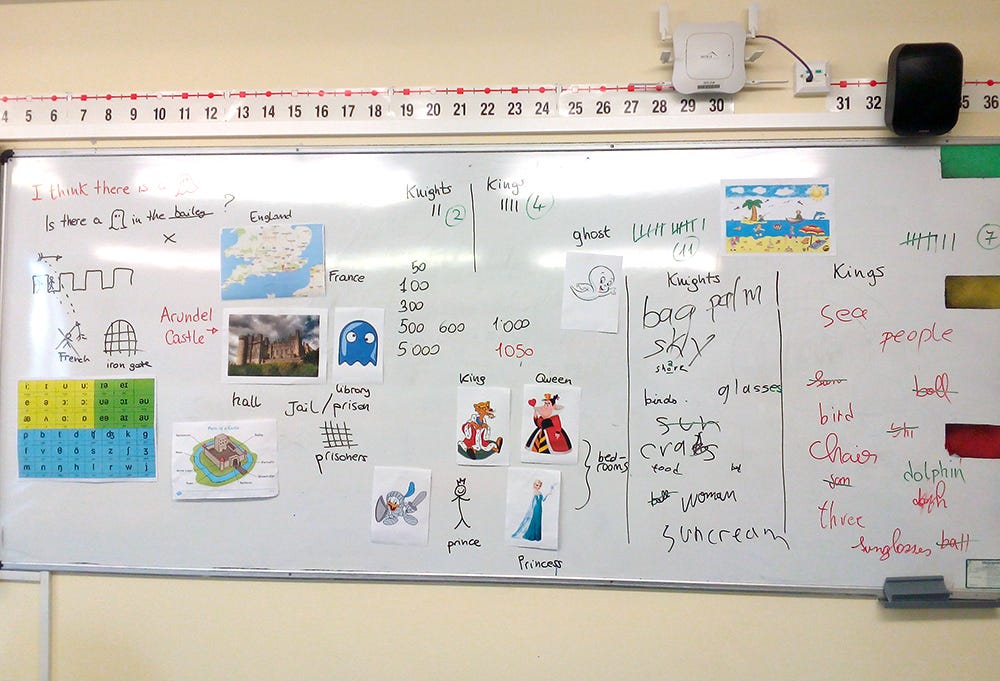 4 5 6 7 8 9 10 11 12 13 14 15 16 17 18 19 20 21 22 23 24 25 26 27 28 29 30 31 32 35 36
I think there is a
Is there a in the bailey ?
England
France
Arundel
Castle
French
iron gate
hall
Jail / prison
library
prisoners
Knights
2
Kings
4
50
100
300
500 600 1000
5000 1050
King
Queen
bed-
rooms
prince
Princess
ghost
11
7
Knights
bag palm
sky
share
birds. glasses
sun
crabs
food
woman
suncream
Kings
sea
people
ball
bird
chair
dolphin
three
sunglasses ball